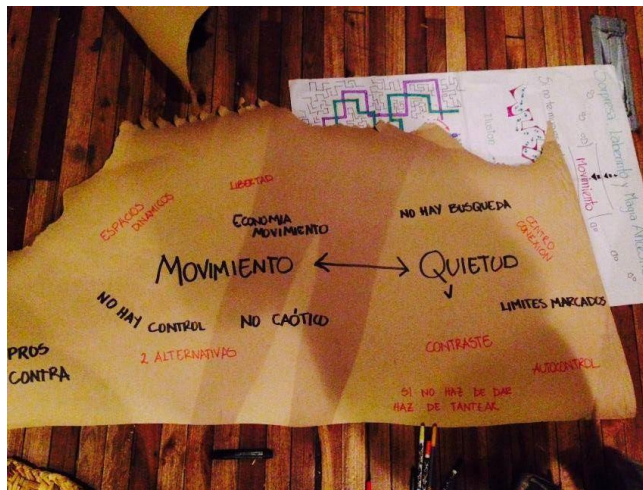 LIBERTAD
ESPACIOS
DINAMICOS
ECONOMIA
MOVIMIENTO
NO HAY BUSQUEDA
CENTRO
CONEXION
MOVIMIENTO
QUIETUD
NO HAY CONTROL
NO CAÓTICO
LIMITES MARCADOS
2 ALTERNATIVAS
CONTRASTE
AUTOCONTROL
PROS
CONTRA
SI NO HAZ DE DAR
HAZ DE TANTEAR
Movimiento